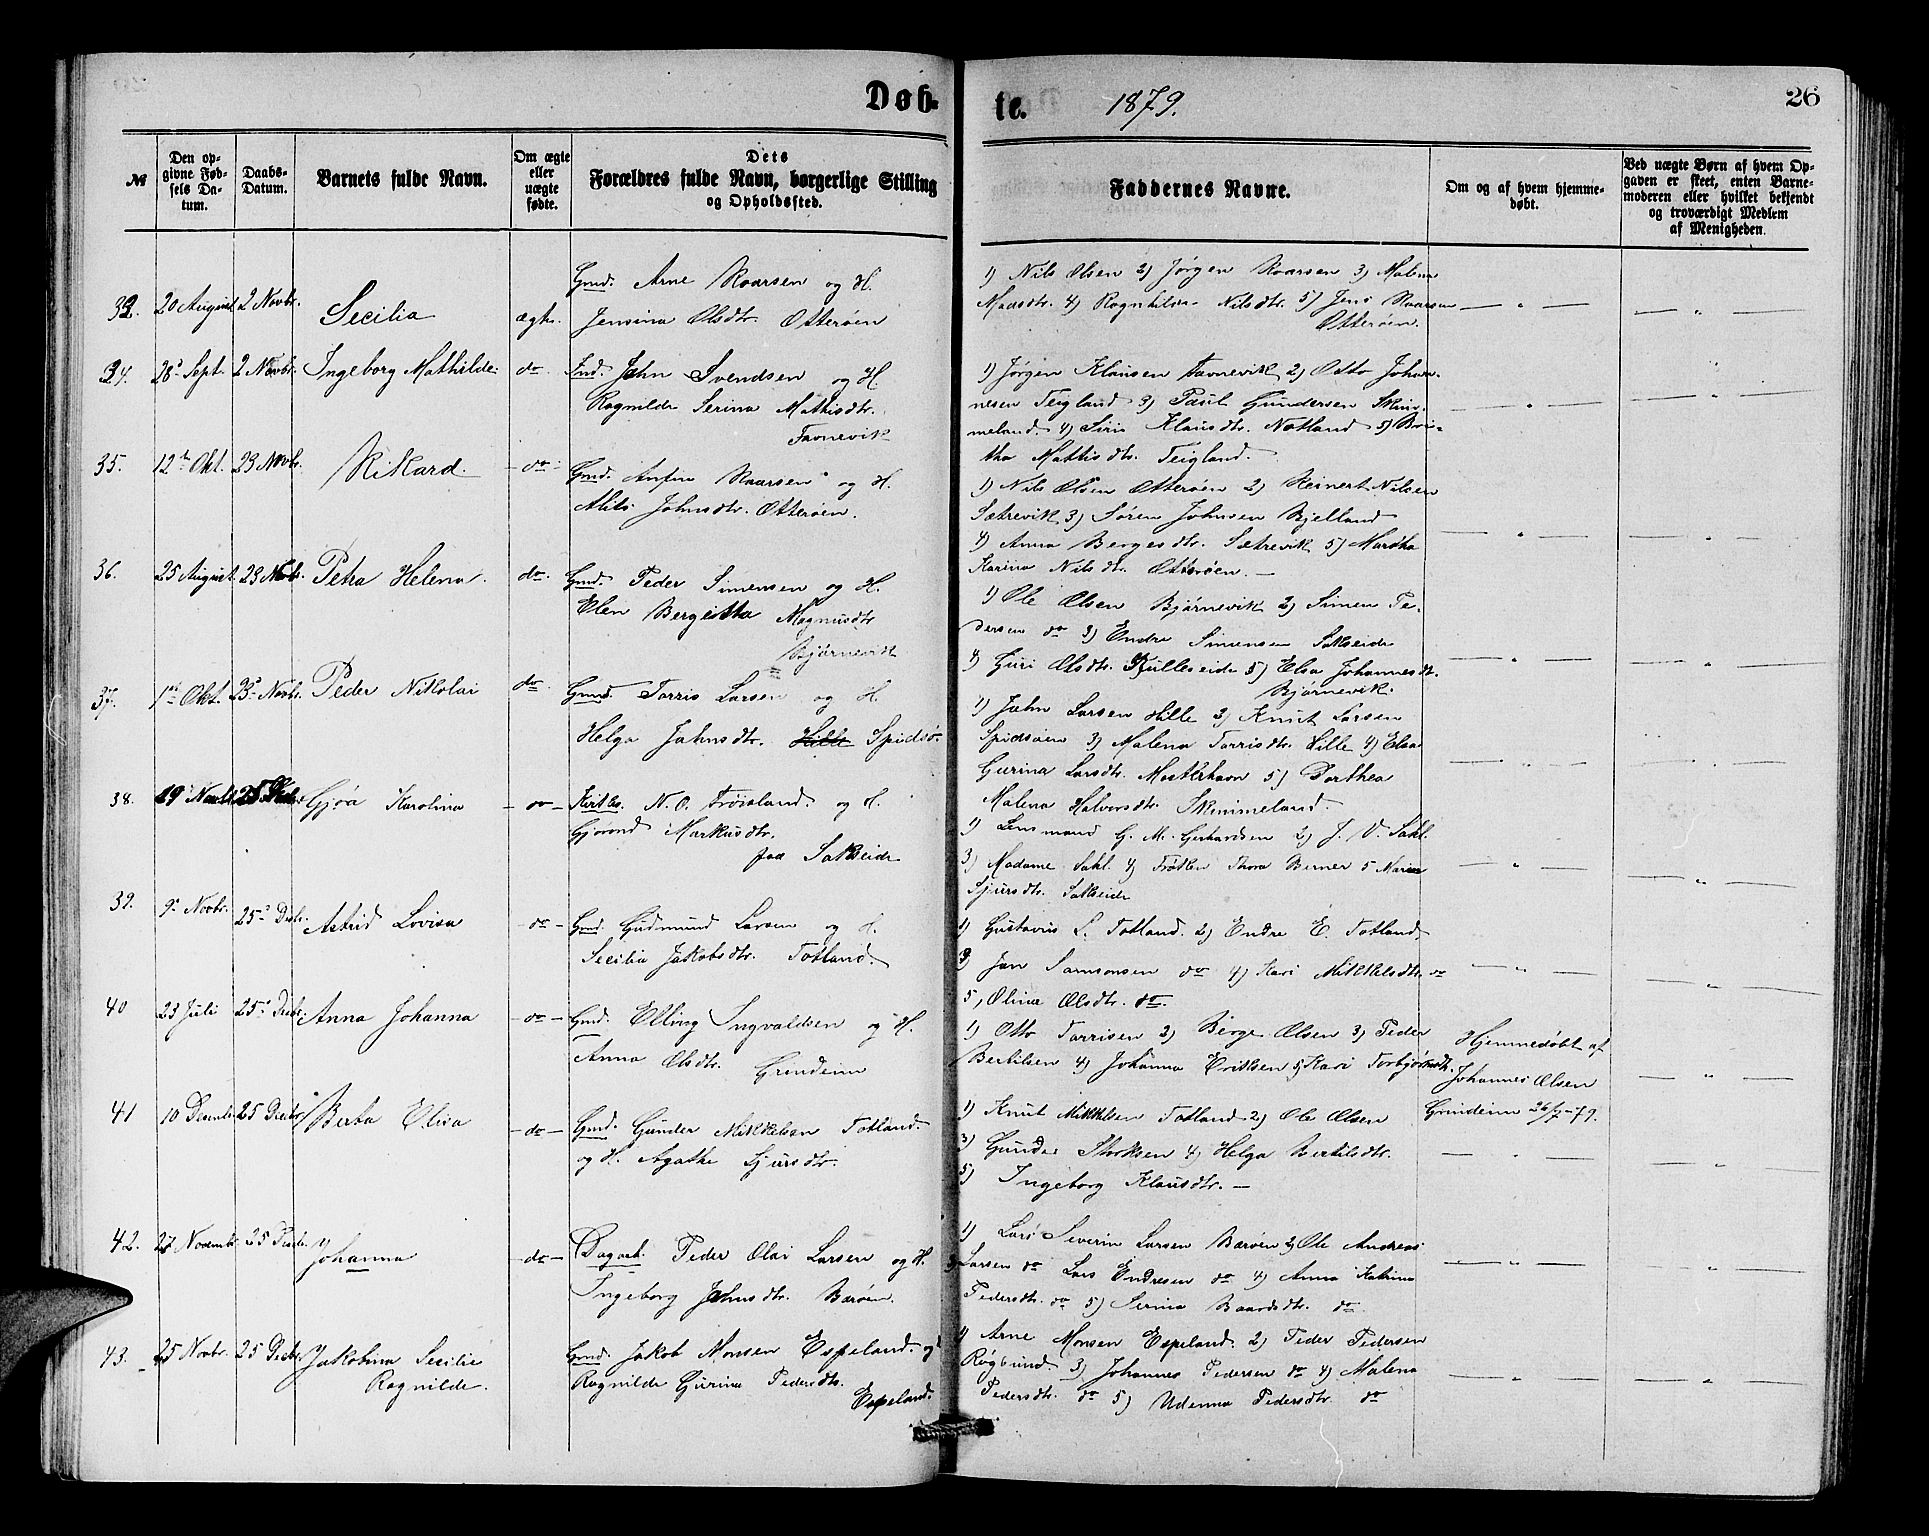 Døb-
te.
1879.
26
№
Den op-
givne Fød-
sels Da-
tum.
Daabs-
Datum.
Barnets fulde Navn.
Om ægte
eller
uægte
fødte.
Dets
Forældres fulde Navn, borgerlige Stilling
og Opholdssted.
Faddernes Navne.
Om og af hvem hjemme-
døbt.
Ved uægte Børn af hvem Op-
gaven er skeet, enten Barne-
moderen eller hvilket bekjendt
og troværdigt Medlem
af Menigheden.
33. 20 August 2 Novbr. Secilia ægte.
Gmd. Arne Roarsen og H.
Jensina Olsdtr. Otterøen
1) Nils Olsen 2) Jørgen Roarsen 3) Malena
Madsdtr. 4) Ragnhilda Nilsdtr. 5) Jens Roarsen
Otterøen.
34. 28de Sept. 2 Novbr. Ingeborg Mathilde. do.
Ind. John Svendsen og H.
Ragnilde Serina Mathisdtr.
Tavnevik
1) Jørgen Klausen Tavnevik 2) Otto Johan-
nesen Teigland 3) Paul Gundersen Skim-
meland. 4) Siri Klausdtr. Notland 5) Bri-
tha Mattisdtr. Teigland.
35. 12te Okt. 23 Novbr. Rikard. - do -
Gmd. Anfin Roarsen og H.
Johnsdtr. Otterøen.
1) Nils Olsen Otterøen 2) Reinert Nilsen
Sætrevik 3) Søren Johnsen Bjelland
4) Anna Bergesdtr. Sætrevik 5) Martha
Karina Nilsdtr. Otterøen. —
36. 25 August. 23 Novbr. Petra Helena. do.
Gmd. Peder Simensen og H.
Elen Bergitha Magnusdtr.
Bjørnevik
1) Ole Olsen Bjørnevik 2) Simen Pe-
dersen do 3) Endre Simensen Sakseide
4) Guri Olsdtr. Kulleseide 5) Elsa Johannesdt.
Bjørnevik.
37. 1ste Okt. 23de Novbr. Peder Nikolai do.
Gmd. Torris Larsen og H.
Helga Johnsdtr. Hille Spidsø-
1) John Larsen Hille 2) Knut Larsen
Spidsøen 3) Malena Torrisdtr. Hille 4) Elsa
Gurina Larsdtr. Mosterhavn 5) Dorthea
Malena Halvorsdtr. Skimmeland.
38. 19 25 Decbr. Gjøa Karolina - do -
Kirkes. N. O. Frøisland. og H.
Gjorond Markusdtr.
paa Sakseide
1) Lensmand G. M. Gerhardsen 2) J. V. Sahl.
3) Madame Sahl. 4) Frøken Thora Berner 5 Maria
Sjursdtr. Sakseide
39. 9de Novbr. 25de Decbr. Astrid Lovisa - do -
Gmd. Gudmund Larsen og H.
Secilia Jakobsdtr. Totland.
1) Gustavus L. Totland. 2) Endre E. Totland
3) Jan Samsonsen do 4) Kari Mikkelsdtr. do
5, Olina Olsdtr. do.
40 23 Juli 25de Decbr. Anna Johanna - do -
Gmd. Elling Ingvaldsen og H.
Anna Olsdtr. Grindeim
1) Otto Torrisen 2) Berge Olsen 3) Peder
Bertilsen 4) Johanna Eriksen 5) Kari Torbjørnsdtr.
Hjemmedøbt af
Johannes Olsen
Grindeim 26/7-79.
41 10 Decembr 25 Decbr. Berta Elisa - do -
Gmd. Gunder Mikkelsen Totland.
og H. Agathe Sjursdtr.
1) Knut Mikkelsen Totland. 2) Ole Olsen
3) Gunder Storksen 4) Helga Bertilsdtr.
5) Ingeborg Klausdtr. —
42. 27 Novembr 25 Decbr. Johanna - do -
Dagarb. Peder Olai Larsen og H.
Ingeborg Johnsdtr. Barøen.
1) Lars Severin Larsen Barøen 2) Ole Andreas
Larsen do 3) Lars Endresen do 4) Anna Katrina
Pedersdtr. do 5) Serina Baardsdtr. do
43. 25 Novbr. 25 Decbr. Jakobina Secilie
Ragnilde.
Gmd. Jakob Monsen Espeland. og
Ragnilde Gurina Pedersdtr.
Espeland.
1) Arne Monsen Espeland. 2) Peder Pedersen
Røgsund. 3) Johannes Pedersen do 4) Malena
Pedersdtr. do 5) Udenna Pedersdtr. do